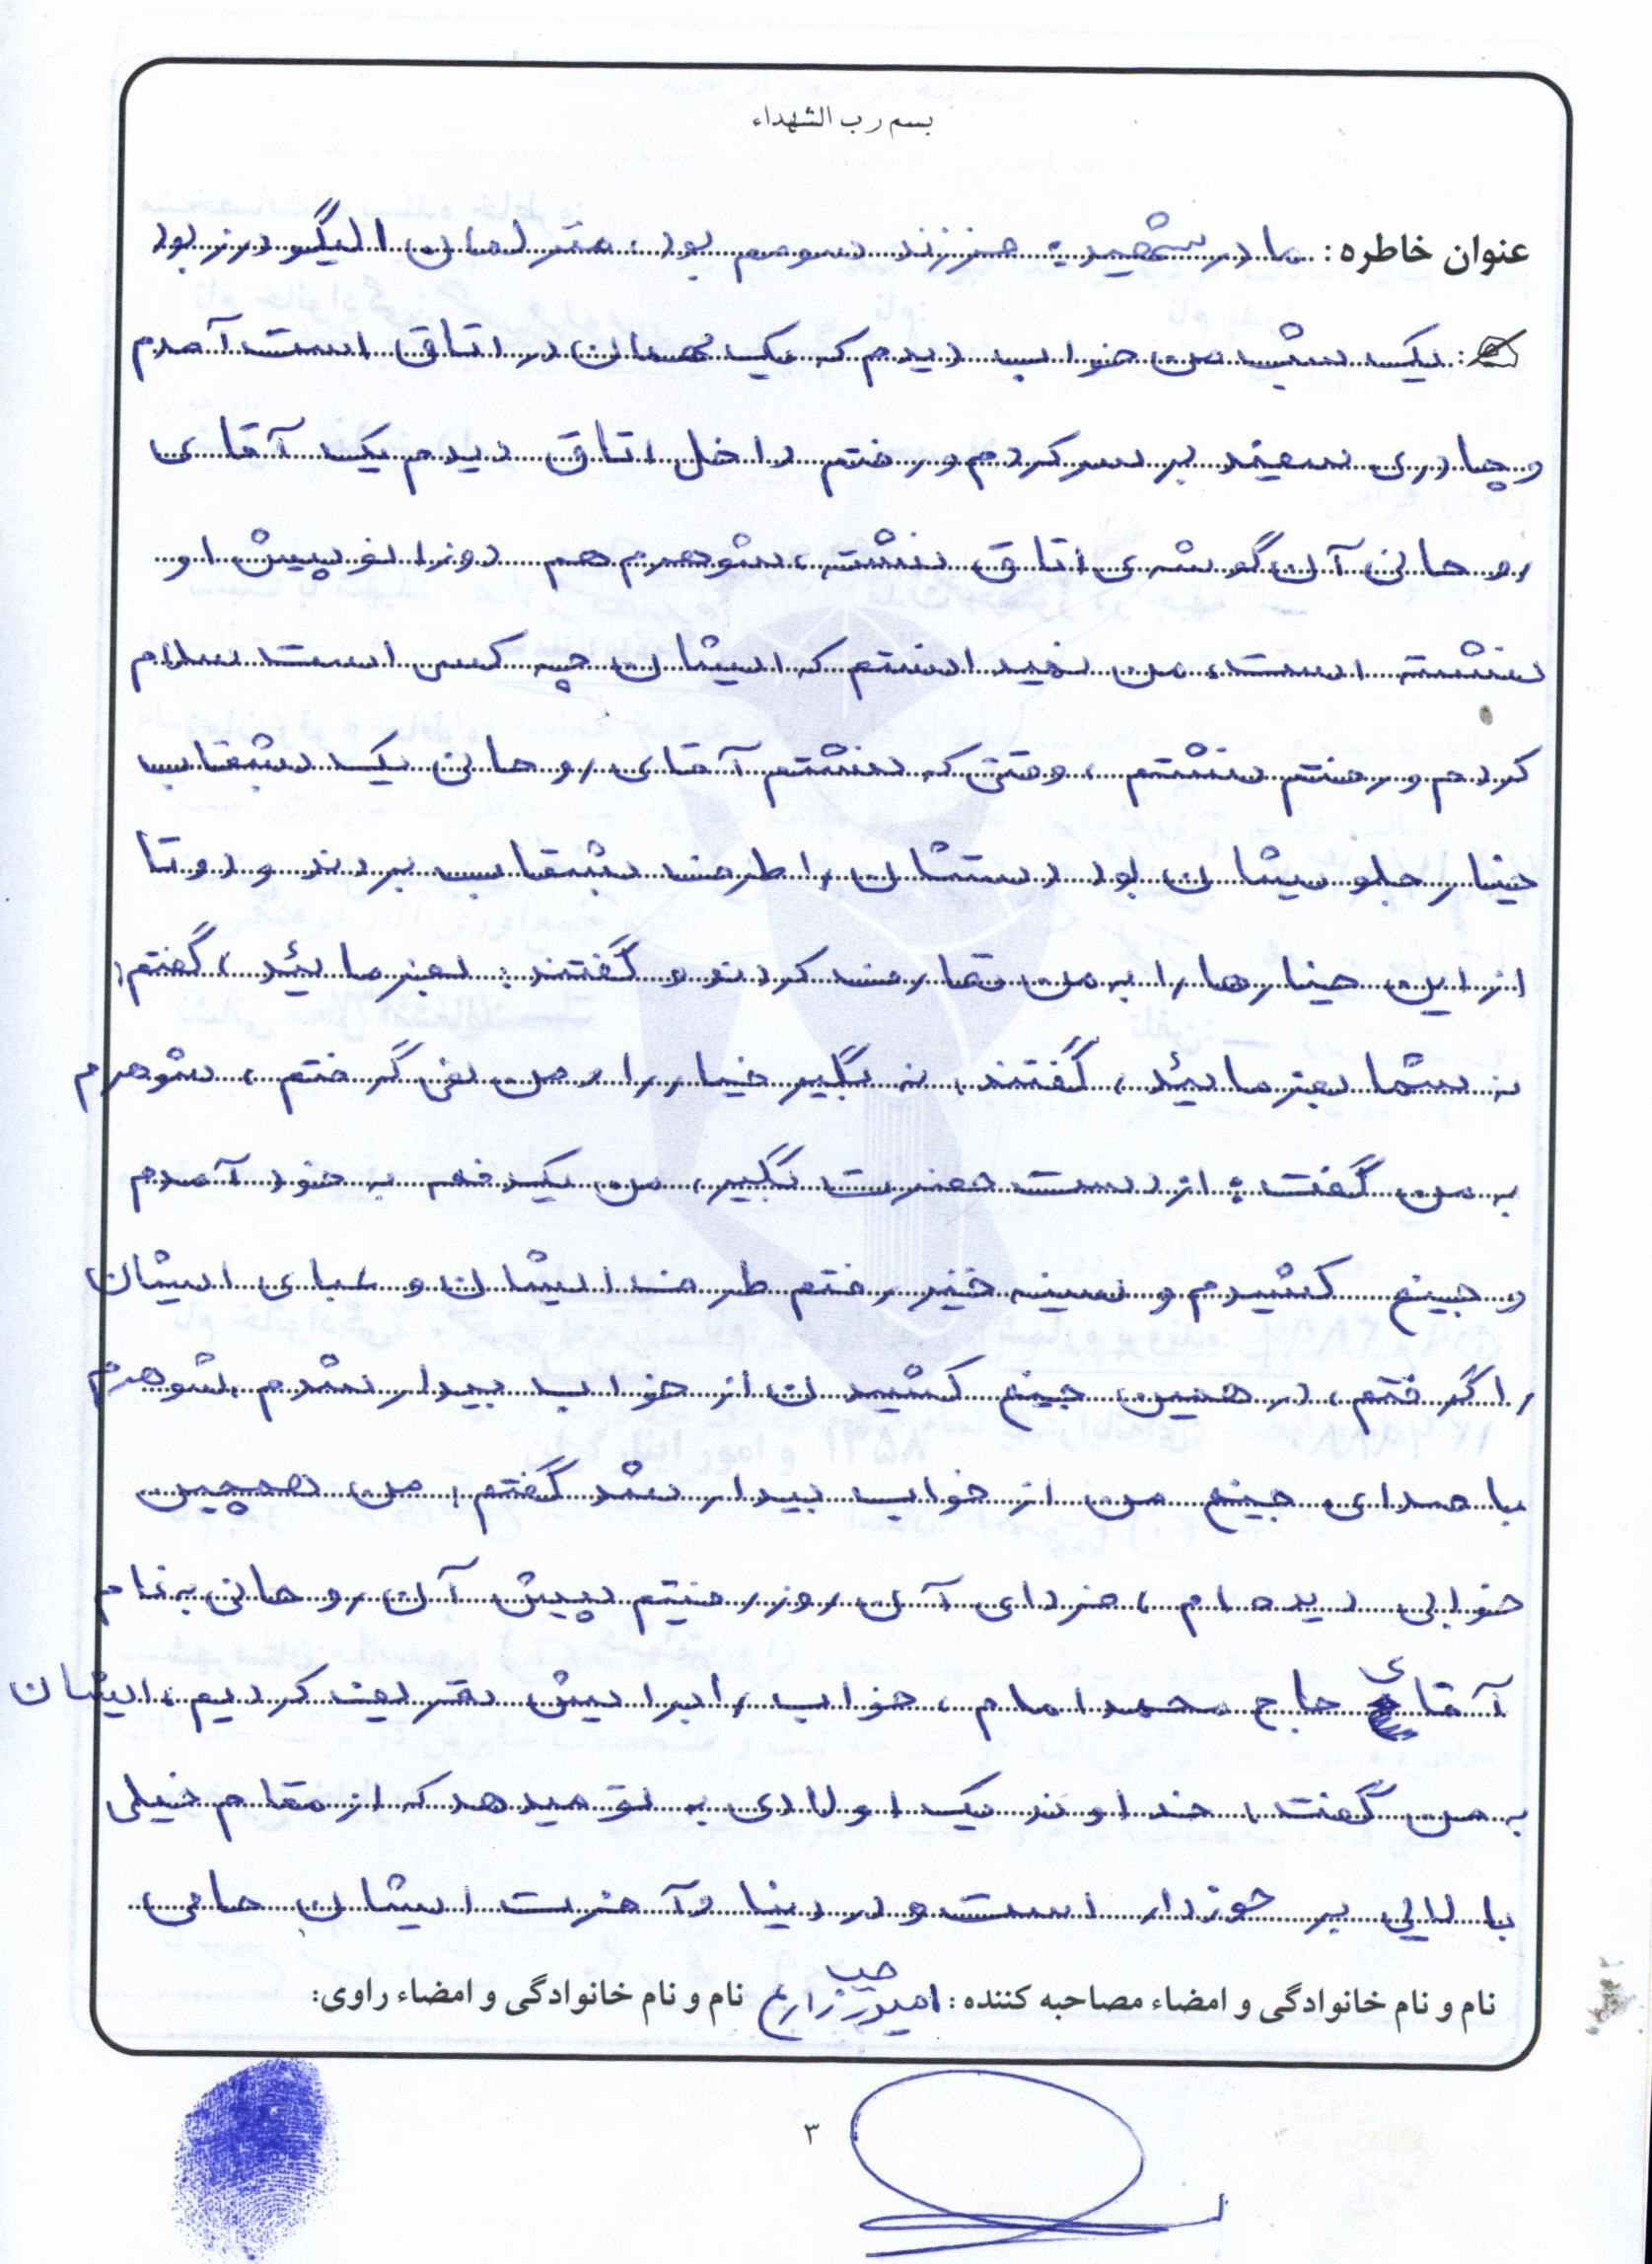 بسم رب الشهداء
عنوان خاطره: مادر شهید: فرزند سومم بود، منزلمان الیگودرز بود
: یک شب من خواب دیدم که یک مهمان در اتاق است آمدم
و چادری سفید بر سر کردم و رفتم داخل اتاق دیدم یک آقای
روحانی آن گوشه‌ی اتاق نشسته، شوهرم هم دوزانو پیش او
نشسته است، من نمیدانستم که ایشان چه کسی است سلام
کردم و رفتم نشستم، وقتی که نشستم آقای روحانی یک بشقاب
خیار جلویشان بود دستشان را طرف بشقاب بردند و دوتا
از این خیارها را به من تعارف کردند و گفتند: بفرمائید، گفتم:
نه شما بفرمائید، گفتند، نه بگیر خیار را، من نمی گرفتم، شوهرم
به من گفت: از دست حضرت بگیر، من یکدفعه به خود آمدم
و جیغ کشیدم و سینه خیز رفتم طرف ایشان و عبای ایشان
را گرفتم، در همین جیغ کشیدن از خواب بیدار شدم، شوهرم
با صدای جیغ من از خواب بیدار شد گفتم: من همچین
خوابی دیده ام، فردای آن روز رفتیم پیش آن روحانی به نام
آقای حاج محمد امام، خواب را برایش تعریف کردیم، ایشان
به من گفت، خداوند یک اولادی به تو میدهد که از مقام خیلی
بالایی بر خوردار است و در دنیا و آخرت ایشان حامی
نام و نام خانوادگی و امضاء مصاحبه کننده: نام و نام خانوادگی و امضاء راوی:
۳